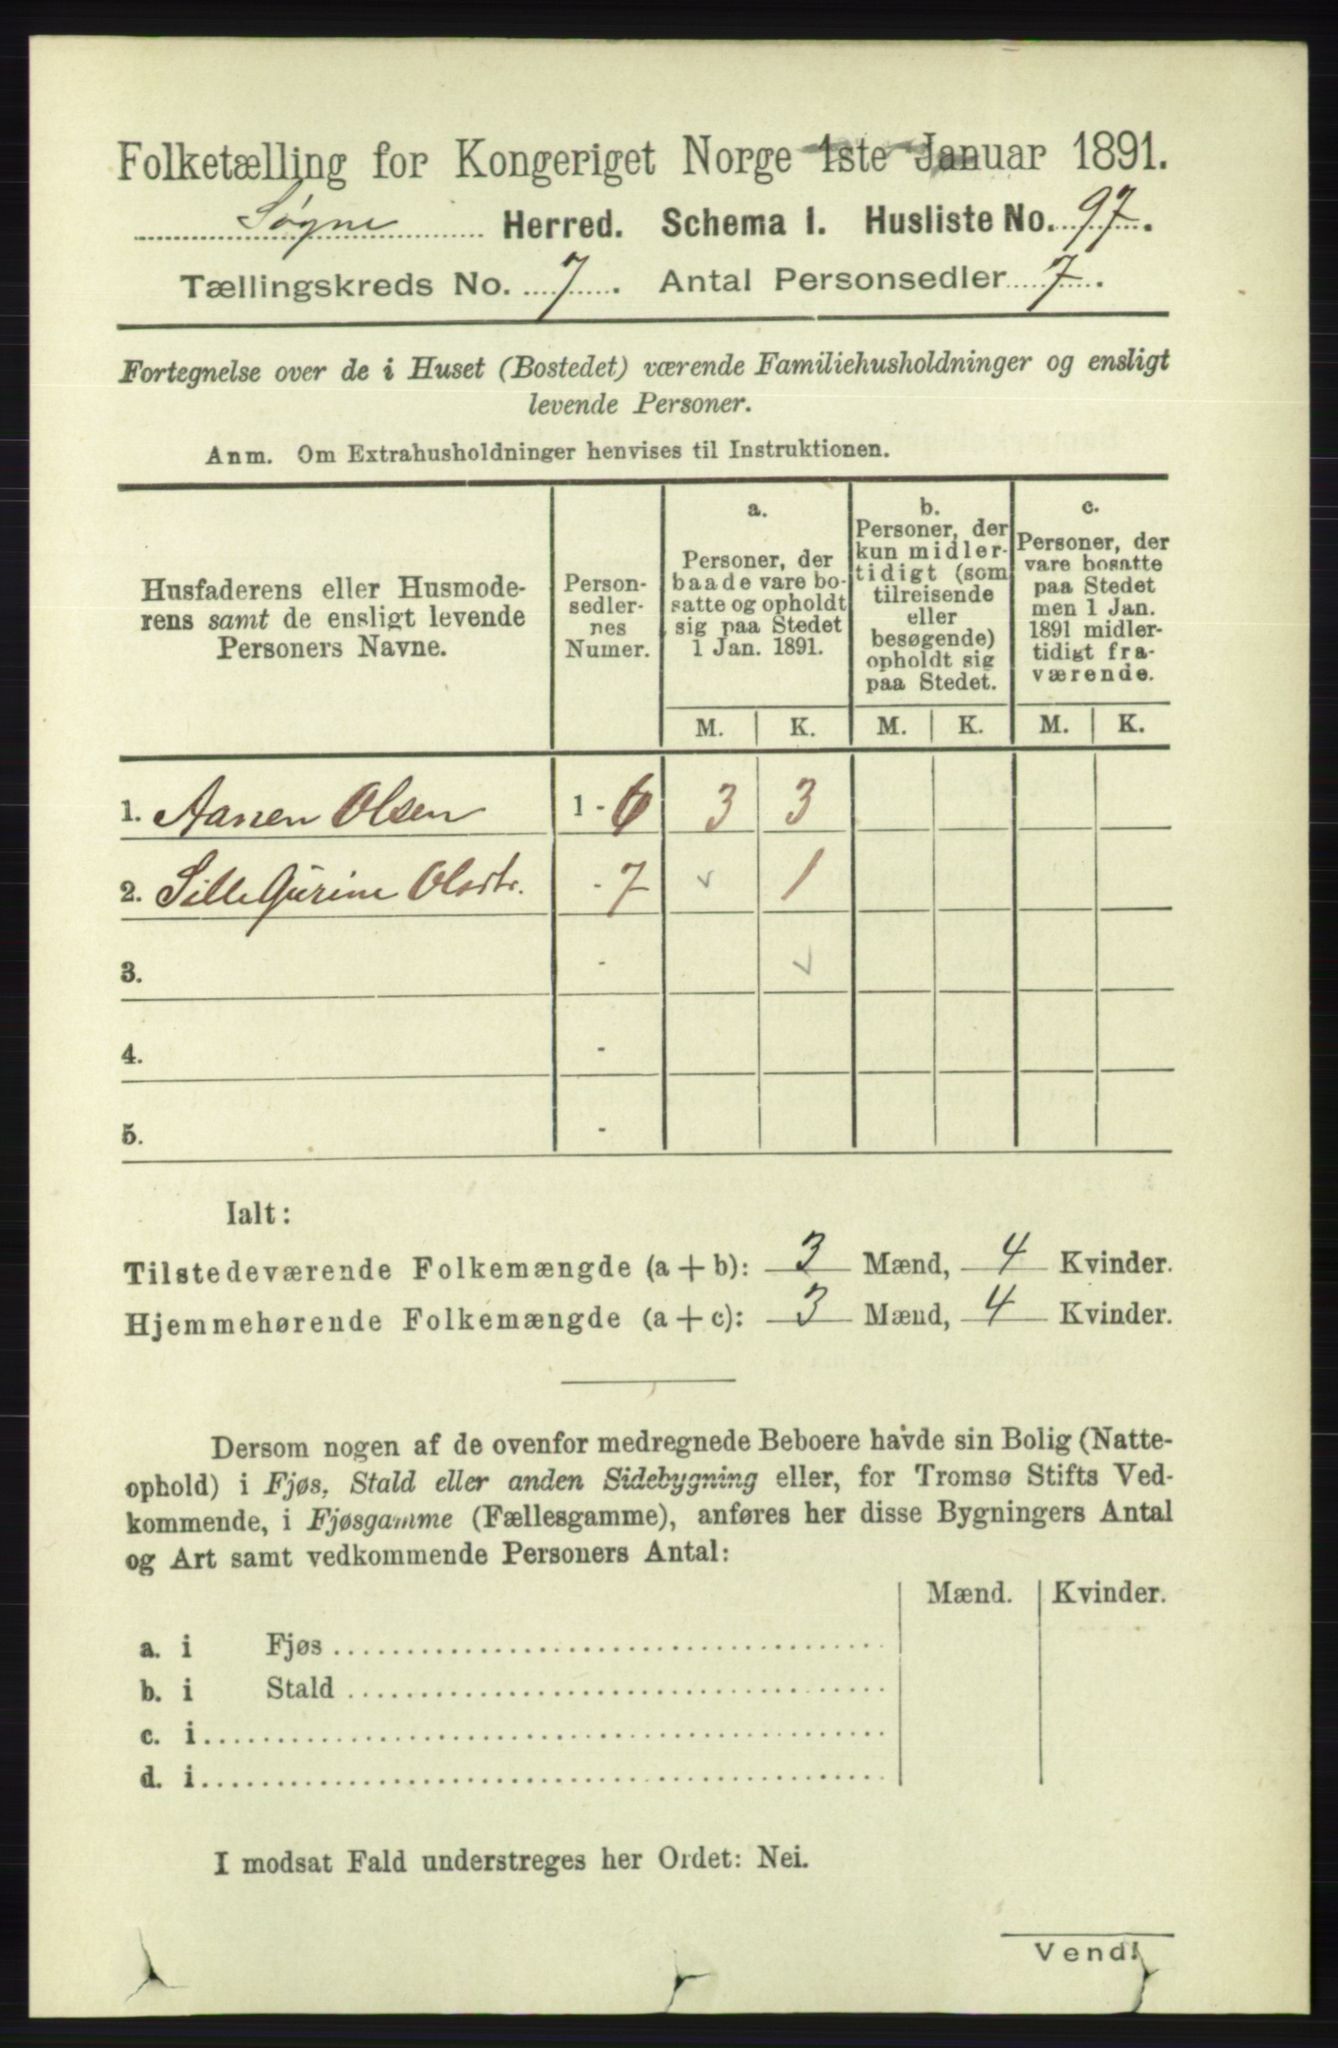 Folketælling for Kongeriget Norge 1ste Januar 1891.
Søgne Herred. Schema I. Husliste No. 97.
Tællingskreds No. 7. Antal Personsedler 7.
Fortegnelse over de i Huset (Bostedet) værende Familiehusholdninger og ensligt
levende Personer.
Anm. Om Extrahusholdninger henvises til Instruktionen.
Husfaderens eller Husmode-
rens samt de ensligt levende
Personers Navne.
Person-
sedler-
nes
Numer.
a.
Personer, der
baade vare bo-
satte og opholdt
sig paa Stedet
1 Jan. 1891.
b.
Personer, der
kun midler-
tidigt (som
tilreisende
eller
besøgende)
opholdt sig
paa Stedet.
c.
Personer, der
vare bosatte
paa Stedet
men 1 Jan.
1891 midler-
tidigt fra-
værende.
M. K. M. K. M. K.
1. Aanen Olsen 1 - 6 3 3
2. Sille Gurine Olsdtr. - 7 1
3. -
4. -
5. -
Ialt:
Tilstedeværende Folkemængde (a + b): 3 Mænd, 4 Kvinder.
Hjemmehørende Folkemængde (a + c): 3 Mænd, 4 Kvinder.
Dersom nogen af de ovenfor medregnede Beboere havde sin Bolig (Natte-
ophold) i Fjøs, Stald eller anden Sidebygning eller, for Tromsø Stifts Ved-
kommende, i Fjøsgamme (Fællesgamme), anføres her disse Bygningers Antal
og Art samt vedkommende Personers Antal:
Mænd. Kvinder.
a. i Fjøs
b. i Stald
c. i
d. i
I modsat Fald understreges her Ordet: Nei.
Vend!